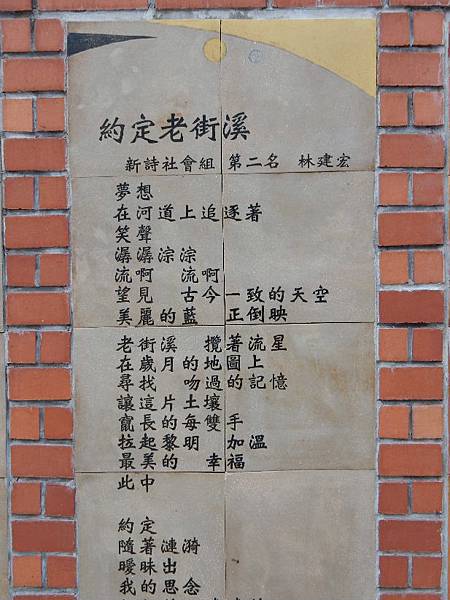 約定老街溪
新詩社會組 第二名 林建宏
夢想
在河道上追逐著
笑聲
潺潺淙淙
流啊 流啊
望見 古今一致的天空
美麗的藍 正倒映
老街溪 攬著流星
在歲月 的地圖上
尋找 吻過的記憶
讓這片土壤
竄長的每雙手
拉起黎明 加溫
最美的 幸福
此中
約定
隨著漣漪
曖昧出
我的思念